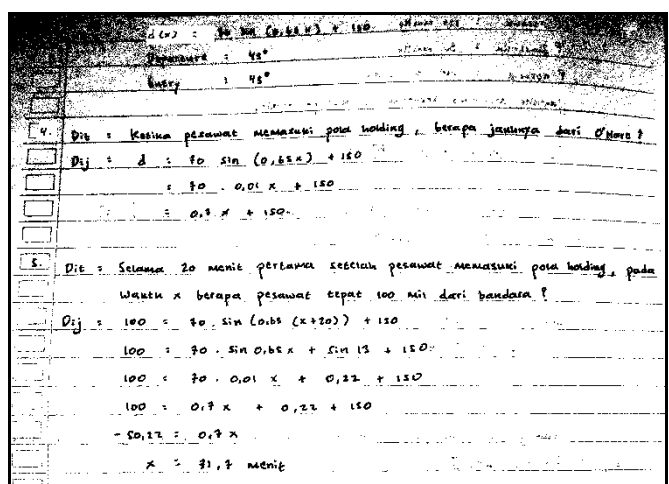 d(x) = 70 sin (0,65 x) + 150
Departure : 45°
Entry : 45°
4. Dit : Ketika pesawat memasuki pola holding, berapa jauhnya dari O'Hare?
Dij : d : 70 sin (0,65x) + 150
= 70 . 0,01 x + 150
= 0,7 x + 150
5. Dit : Selama 20 menit pertama setelah pesawat memasuki pola holding, pada
waktu x berapa pesawat tepat 100 mil dari bandara?
Dij : 100 = 70 . sin (0,65 (x+20)) + 150
100 = 70 . sin 0,65 x + sin 13 + 150
100 = 70 . 0,01 x + 0,22 + 150
100 = 0,7 x + 0,22 + 150
- 50,22 = 0,7 x
x = 71,7 menit